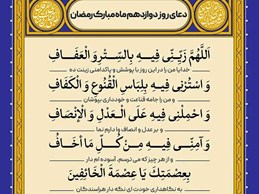 دعای روز دوازدهم ماه مبارک رمضان
اَللّهُمَّ زَيِّنّى فيهِ بِالسِّتْرِ وَالْعَفافِ
خدایا من را در این روز با پوشش و پاکدامنی زینت ده
وَ اسْتُرْنى فيهِ بِلِباسِ الْقُنُوعِ وَ الْكَفافِ
و من را جامه قناعت و خودداری بپوشان
وَ احْمِلْنى فيهِ عَلَى الْعَدْلِ وَ الْإِنْصافِ
و بر عدل و انصاف وا دارم نما
وَ آمِنّى فيهِ مِنْ كُلِّ ما اَخافُ
و از هر چیز که می ترسم، آسوده ام دار
بِعِصْمَتِكَ يا عِصْمَةَ الْخائِفينَ
به نگاهداری خودت ای نگه دار هراسندگان